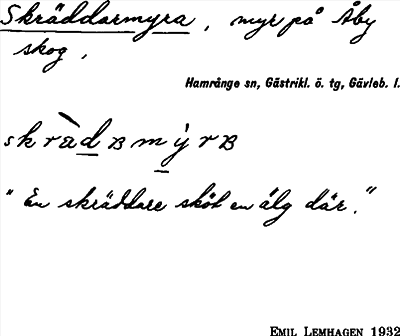 Skräddarmyra, myr på Åby
skog,
Hamrånge sn, Gästrikl. ö. tg, Gävleb. l.
skràdʙmýrʙ
"En skräddare sköt en älg där."
EMIL LEMHAGEN 1932